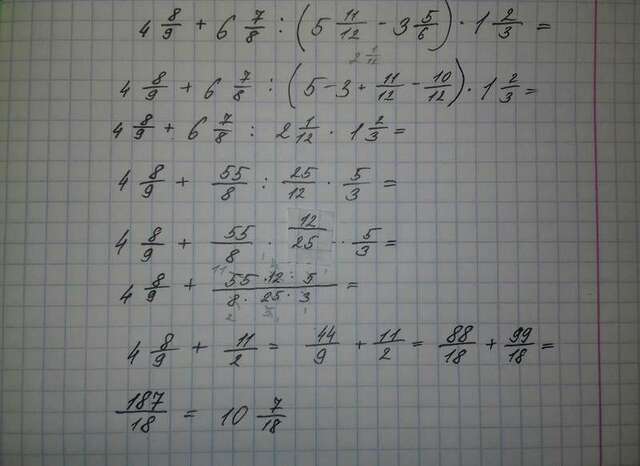 4 8/9 + 6 7/8 : (5 11/12 - 3 5/6) · 1 2/3 =
2 1/12
4 8/9 + 6 7/8 : (5 - 3 + 11/12 - 10/12) · 1 2/3 =
4 8/9 + 6 7/8 : 2 1/12 · 1 2/3 =
4 8/9 + 55/8 : 25/12 · 5/3 =
4 8/9 + 55/8 · 12/25 · 5/3 =
4 8/9 + 55 · 12 · 5 / 8 · 25 · 3 =
4 8/9 + 11/2 = 44/9 + 11/2 = 88/18 + 99/18 =
187/18 = 10 7/18